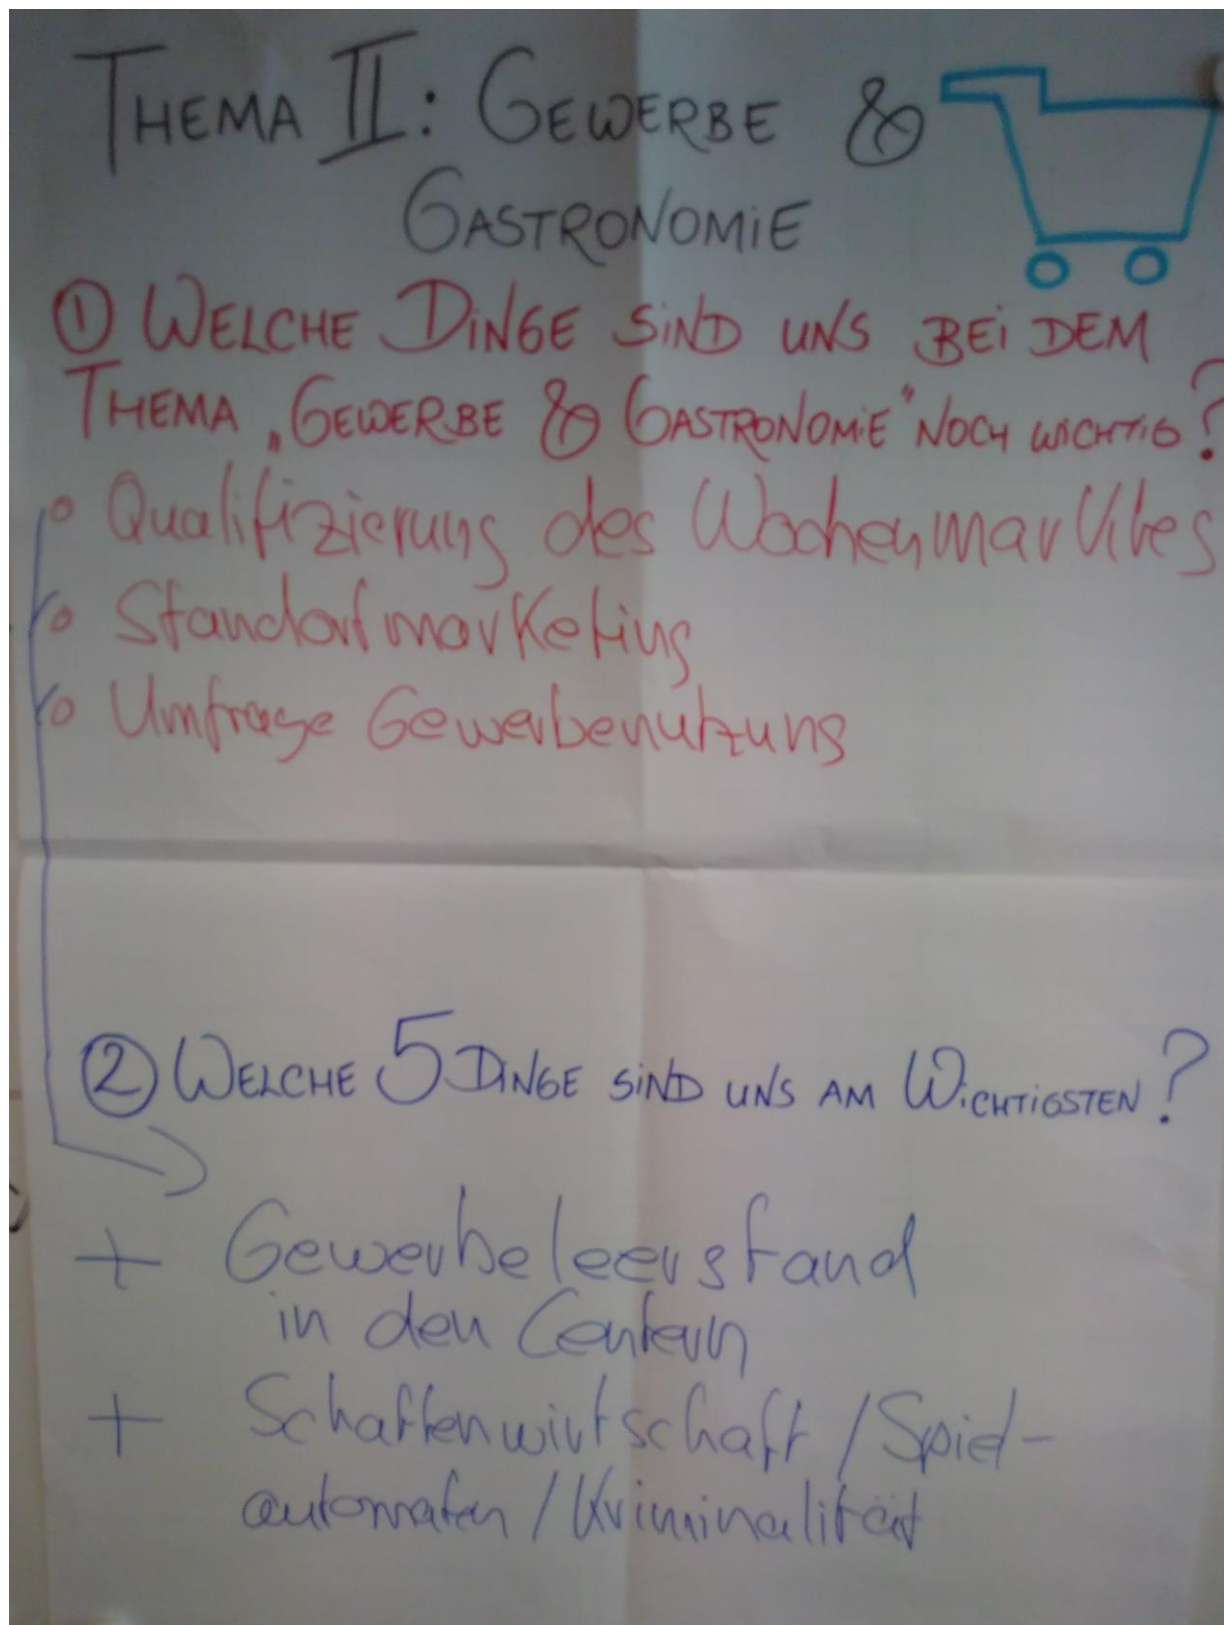 THEMA II: GEWERBE &
GASTRONOMIE
① WELCHE DINGE SIND UNS BEI DEM
THEMA „GEWERBE & GASTRONOMIE" NOCH WICHTIG?
o Qualifizierung des Wochenmarktes
o Standortmarketing
o Umfrage Gewerbenutzung
② WELCHE 5 DINGE SIND UNS AM WICHTIGSTEN?
+ Gewerbeleerstand
in den Centern
+ Schattenwirtschaft / Spiel-
automaten / Kriminalität